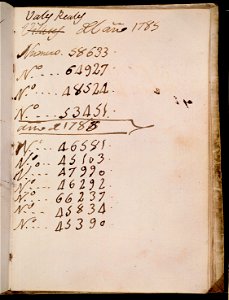 Valy Realy
Del año 1785
Numero. 58633.
N.º ... 64927
N.º ... 48524
N.º ... 53451
año d 1788
N.º ... 46581
N.º ... 45103
N.º ... 47990
N.º ... 46292
N.º ... 66237
N.º ... 45834
N.º ... 45390